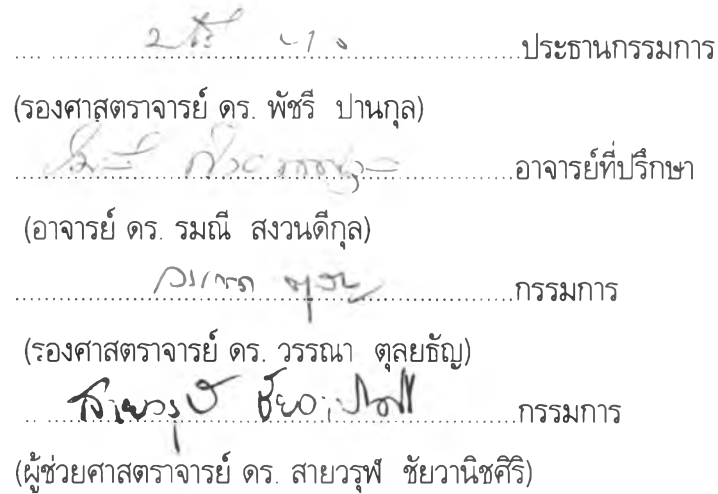 ประธานกรรมการ
(รองศาสตราจารย์ ดร. พัชรี ปานกุล)
อาจารย์ที่ปรึกษา
(อาจารย์ ดร. รมณี สงวนดีกุล)
กรรมการ
(รองศาสตราจารย์ ดร. วรรณา ตุลยธัญ)
กรรมการ
(ผู้ช่วยศาสตราจารย์ ดร. สายวรุฬ ชัยวานิชศิริ)